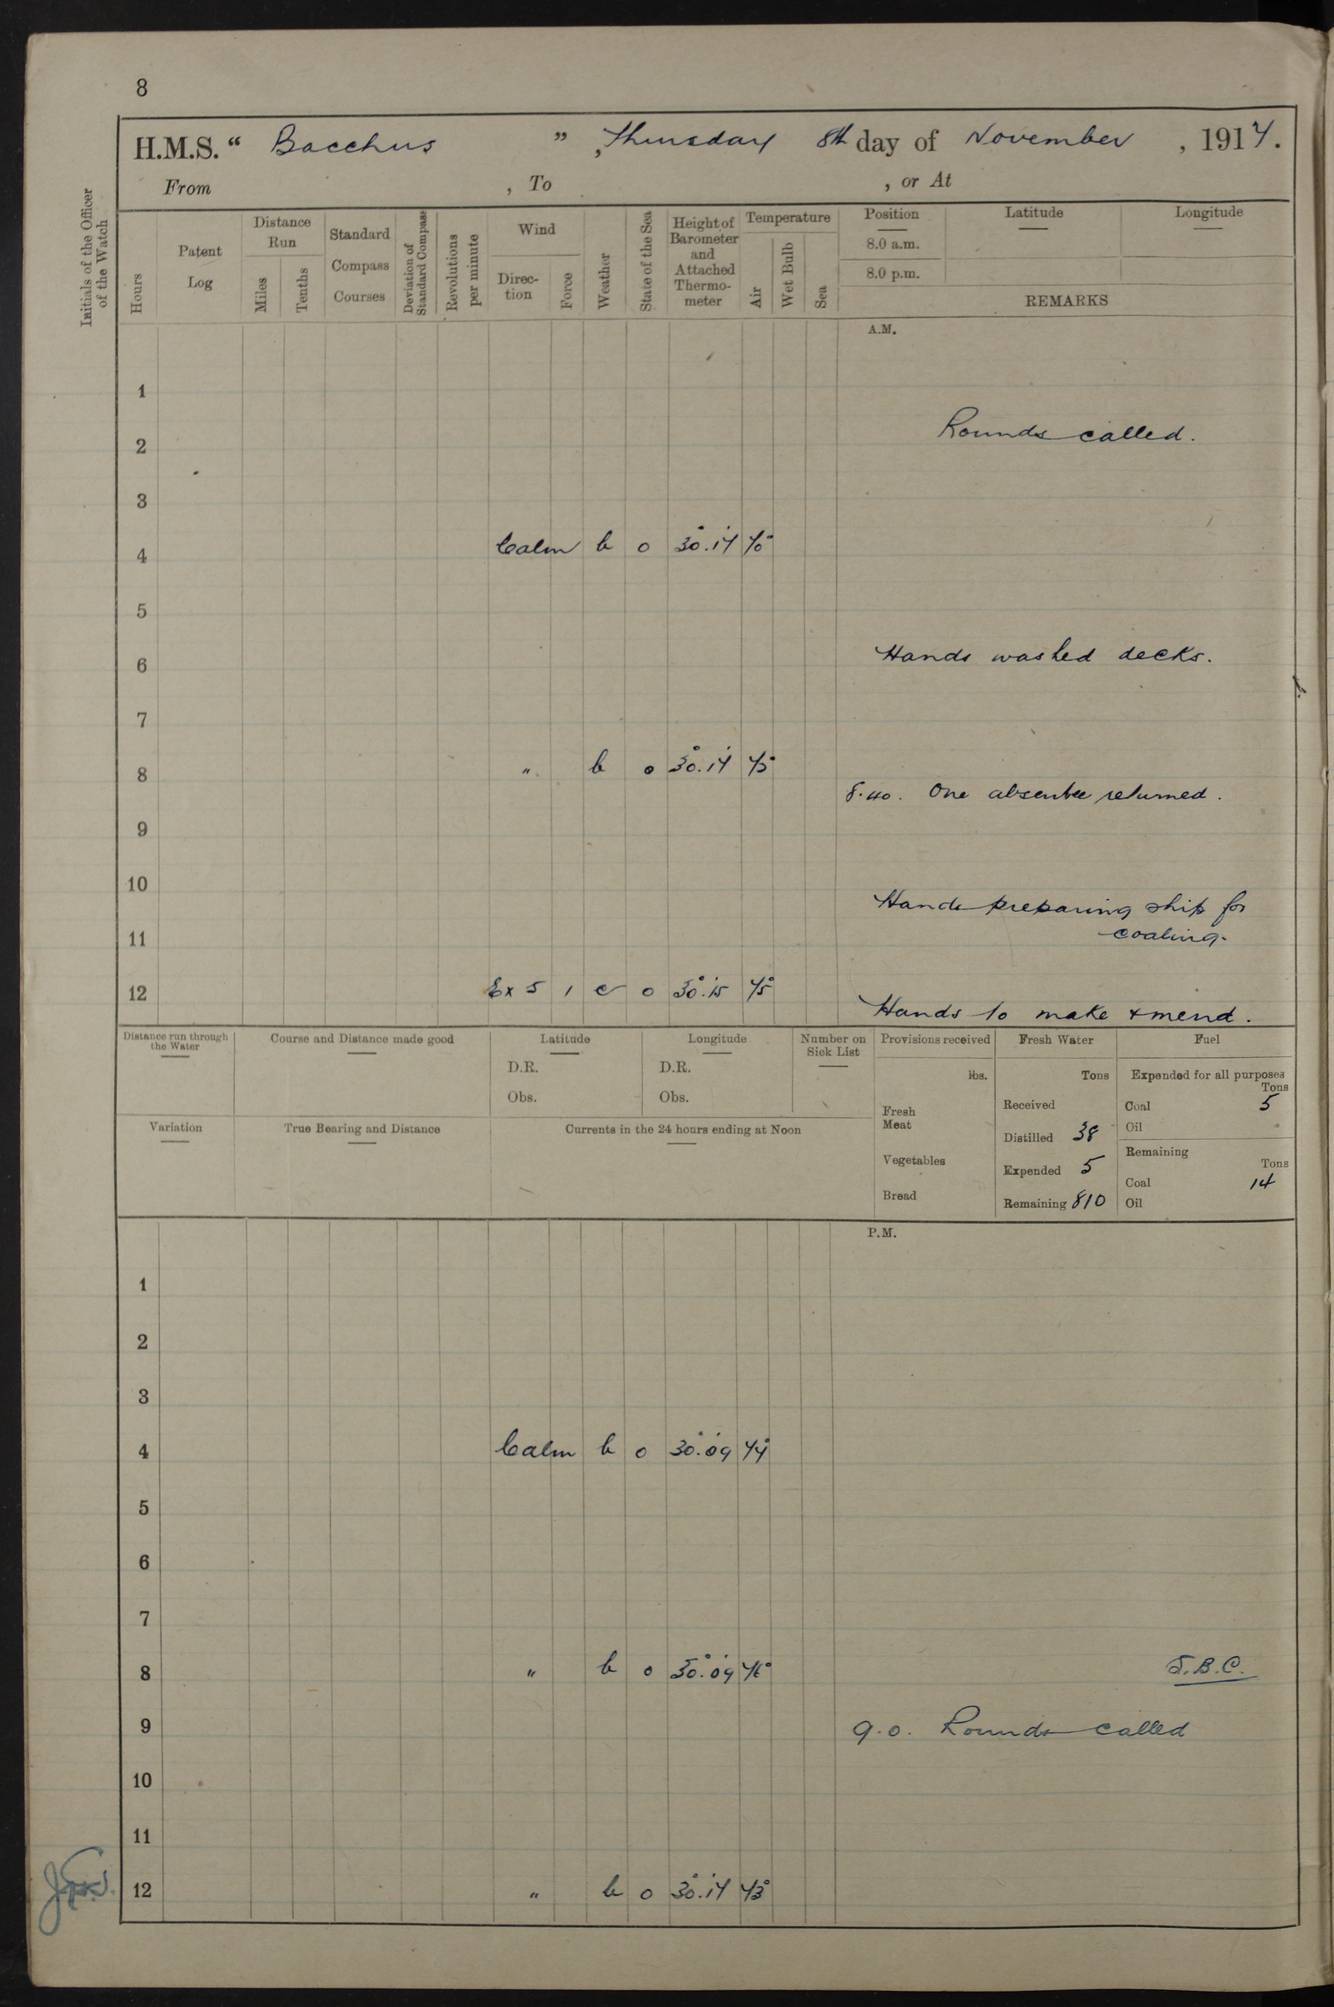 8
H.M.S. “ Bacchus ” , Thursday 8th day of November , 1917.
From , To , or At
Initials of the Officer of the Watch
Hours
Patent Log
Distance Run
Miles
Tenths
Standard Compass Courses
Deviation of Standard Compass
Revolutions per minute
Wind
Direction
Force
Weather
State of the Sea
Height of Barometer and Attached Thermometer
Temperature
Air
Wet Bulb
Sea
Position Latitude Longitude
8.0 a.m.
8.0 p.m.
REMARKS
A.M.
1
Rounds called.
2
3
4 Calm b 0 30.17 70°
5
6 Hands washed decks.
7
8 " b 0 30.17 75
8.40. One absentee returned.
9
10 Hands preparing ship for
11 coaling.
12 E x S 1 c 0 30.15 75°
Hands to make & mend.
Distance run through the Water
Course and Distance made good
Latitude
D.R.
Obs.
Longitude
D.R.
Obs.
Number on Sick List
Variation
True Bearing and Distance
Currents in the 24 hours ending at Noon
Provisions received
lbs.
Fresh Meat
Vegetables
Bread
Fresh Water
Tons
Received
Distilled 38
Expended 5
Remaining 810
Fuel
Expended for all purposes
Tons
Coal 5
Oil
Remaining
Tons
Coal 14
Oil
P.M.
1
2
3
4 Calm b 0 30.09 77°
5
6
7
8 " b 0 30.09 76° J.B.C.
9 9.0. Rounds called
10
11
12 " b 0 30.17 73°